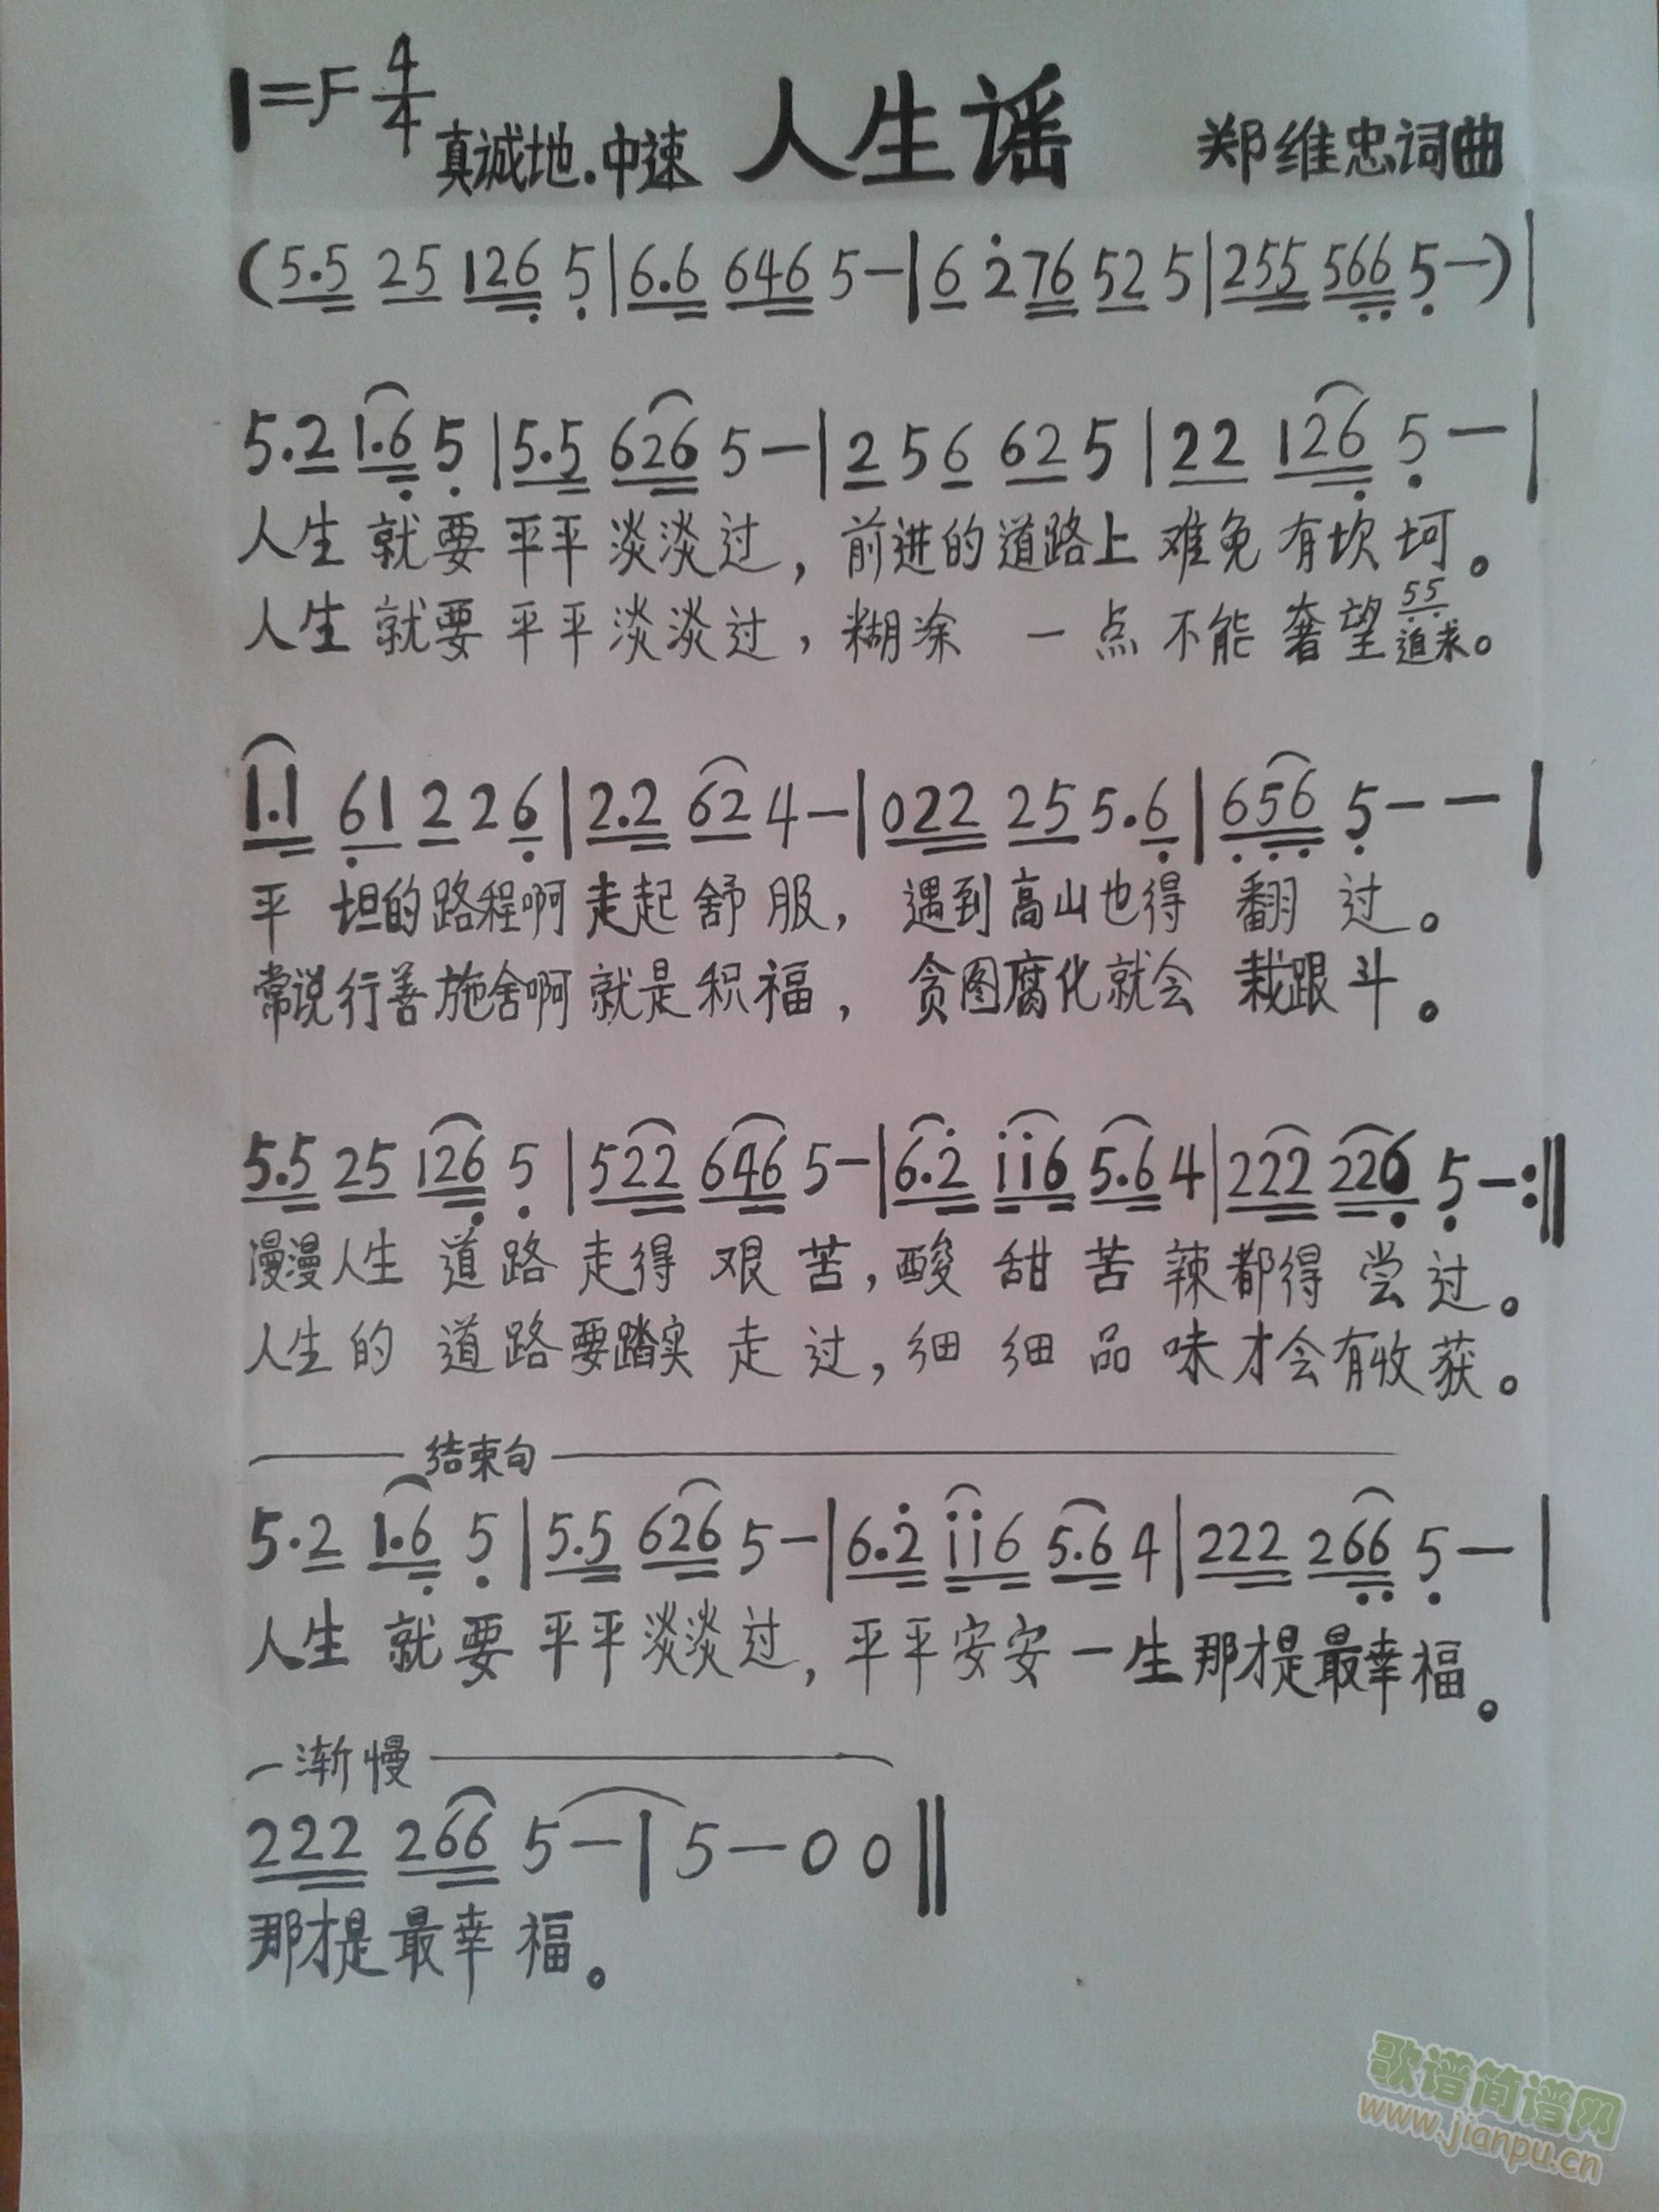 1=F 4/4 真诚地.中速 人生谣 郑维忠词曲
(5.5 25 126 5|6.6 646 5—|6 2̇ 76 52 5|255 566 5—)|
5.2 1.6 5|5.5 626 5—|2 5 6 62 5|22 126 5—|
人生就要平平淡淡过，前进的道路上难免有坎坷。
55
人生就要平平淡淡过，糊涂一点不能奢望追求。
1.1 61 2 2 6|2.2 62 4—|022 25 5.6|656 5——|
平坦的路程啊走起舒服，遇到高山也得翻过。
常说行善施舍啊就是积福，贪图腐化就会栽跟斗。
5.5 25 126 5|522 646 5—|6.2̇ i̇i̇6 5.6 4|222 226 5—:‖
漫漫人生道路走得艰苦，酸甜苦辣都得尝过。
人生的道路要踏实走过，细细品味才会有收获。
结束句
5.2 1.6 5|5.5 626 5—|6.2̇ i̇i̇6 5.6 4|222 266 5—|
人生就要平平淡淡过，平平安安一生那才是最幸福。
渐慢
222 266 5—|5—0 0‖
那才是最幸福。
歌谱简谱网
www.jianpu.cn